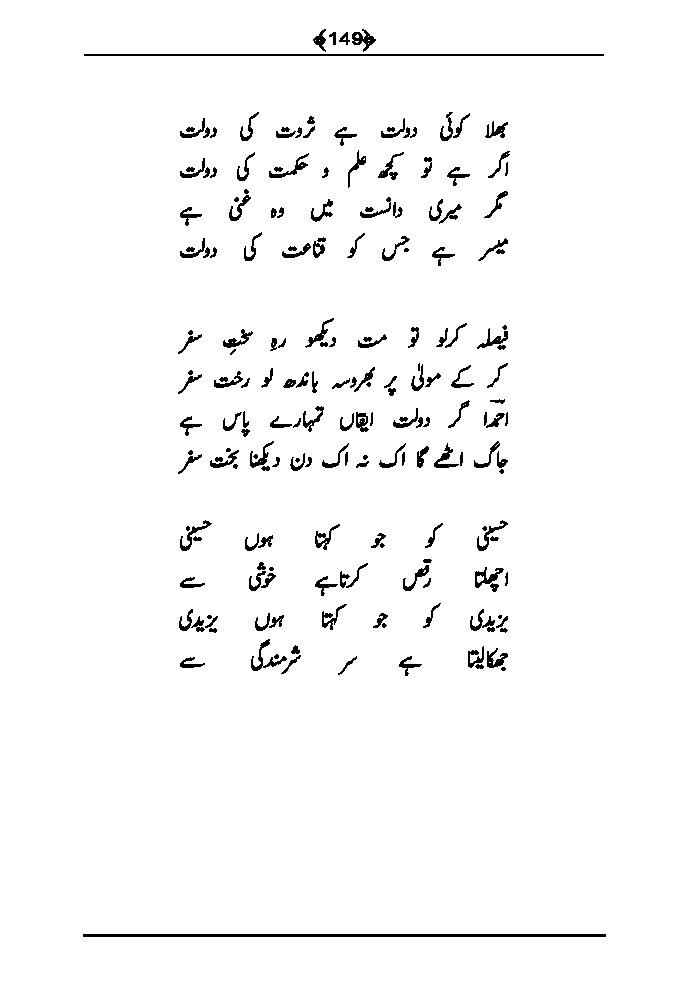 ﴾149﴿
بھلا کوئی دولت ہے ثروت کی دولت
اگر ہے تو کچھ علم و حکمت کی دولت
مگر میری دانست میں وہ غنی ہے
میسر ہے جس کو قناعت کی دولت
فیصلہ کرلو تو مت دیکھو رہِ سختِ سفر
کر کے مولیٰ پر بھروسہ باندھ لو رخت سفر
احمدؔا گر دولت ایقاں تمہارے پاس ہے
جاگ اٹھے گا اک نہ اک دن دیکھنا بخت سفر
حسینی کو جو کہتا ہوں حسینی
اچھلتا رقص کرتاہے خوشی سے
یزیدی کو جو کہتا ہوں یزیدی
جھکالیتا ہے سر شرمندگی سے